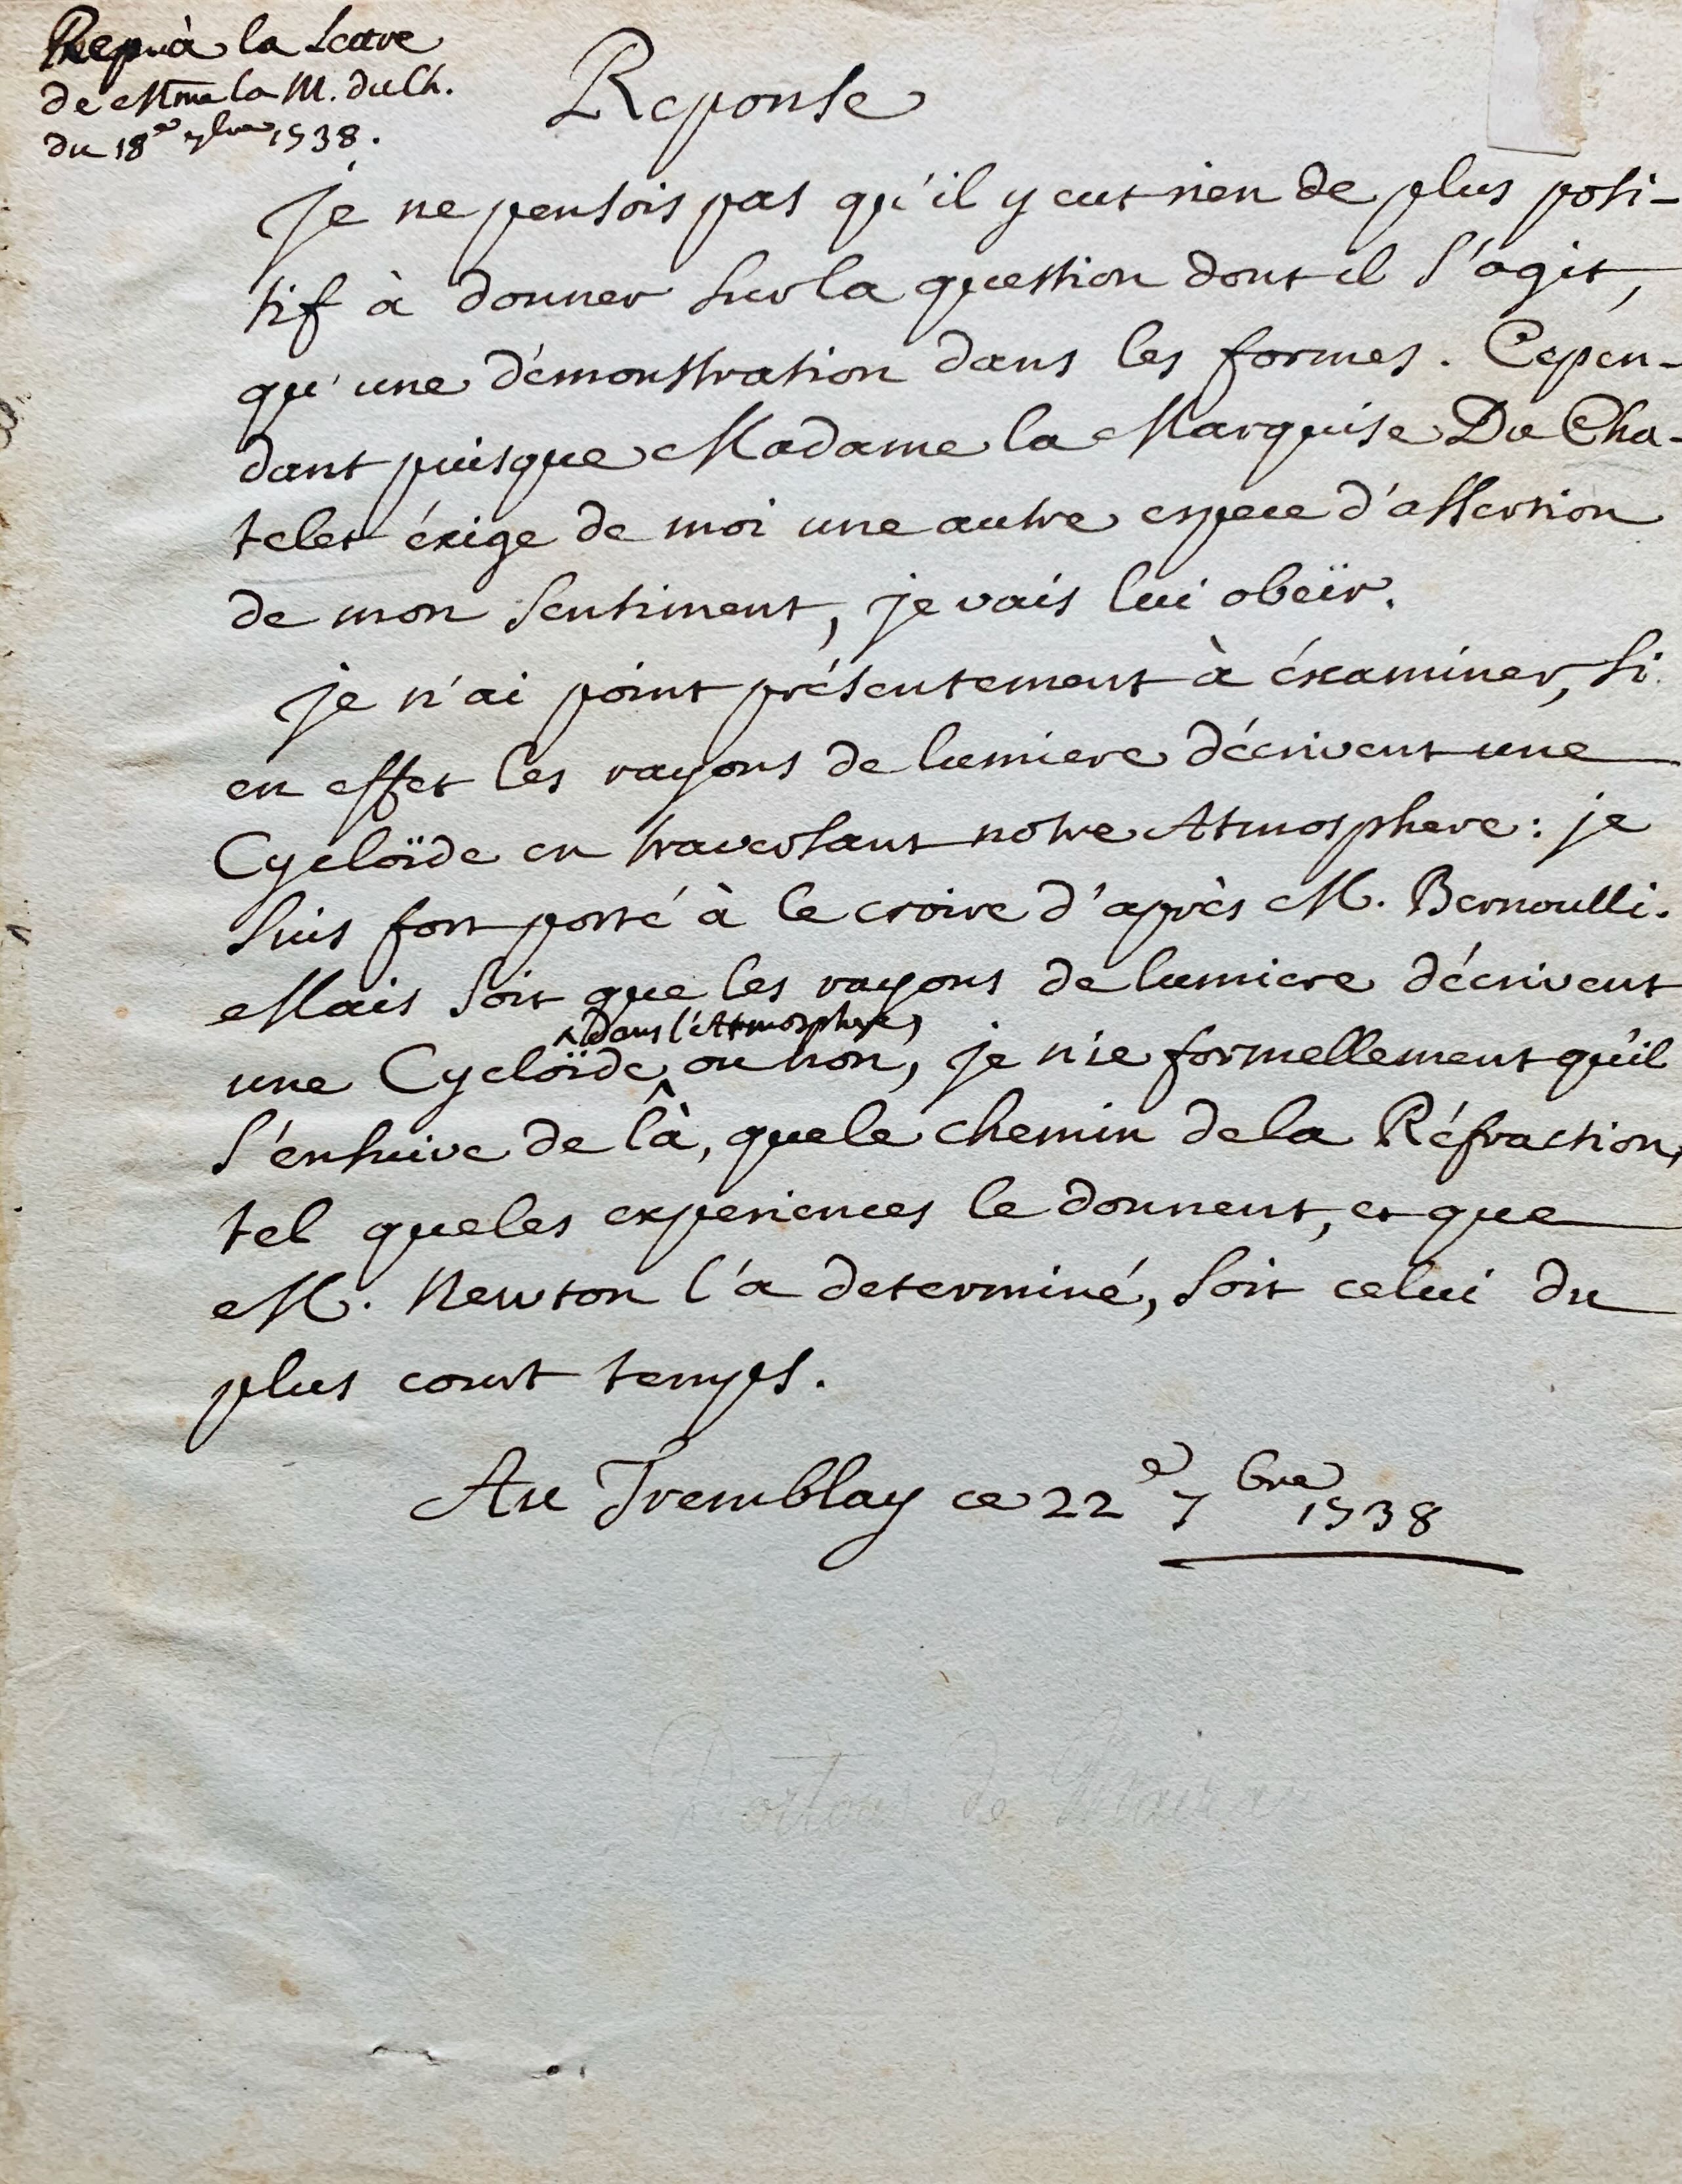 Rep. à la Lettre
de Mme la M. du Ch.
du 18e 7bre 1738.
Reponse
je ne pensois pas qu'il y eut rien de plus posi-
tif à donner sur la question dont il s'agit,
qu'une démonstration dans les formes. Cépen-
dant puisque Madame la Marquise Du Cha-
telet éxige de moi une autre espece d'assertion
de mon sentiment, je vais lui obeïr.
je n'ai point présentement à éxaminer, si
en effet les rayons de lumiere décrivent une
Cycloïde en traversant notre Atmosphere : je
suis fort porté à le croire d'après M. Bernoulli.
Mais soit que les rayons de lumiere décrivent
^ dans l'Atmosphere,
une Cycloïde ^ ou non, je nie formellement qu'il
s'ensuive de là, que le chemin de la Réfraction,
tel que les experiences le donnent, et que
M. Newton l'a determiné, soit celui du
plus court temps.
Au Tremblay ce 22e 7bre 1738
Dortous de Mairan